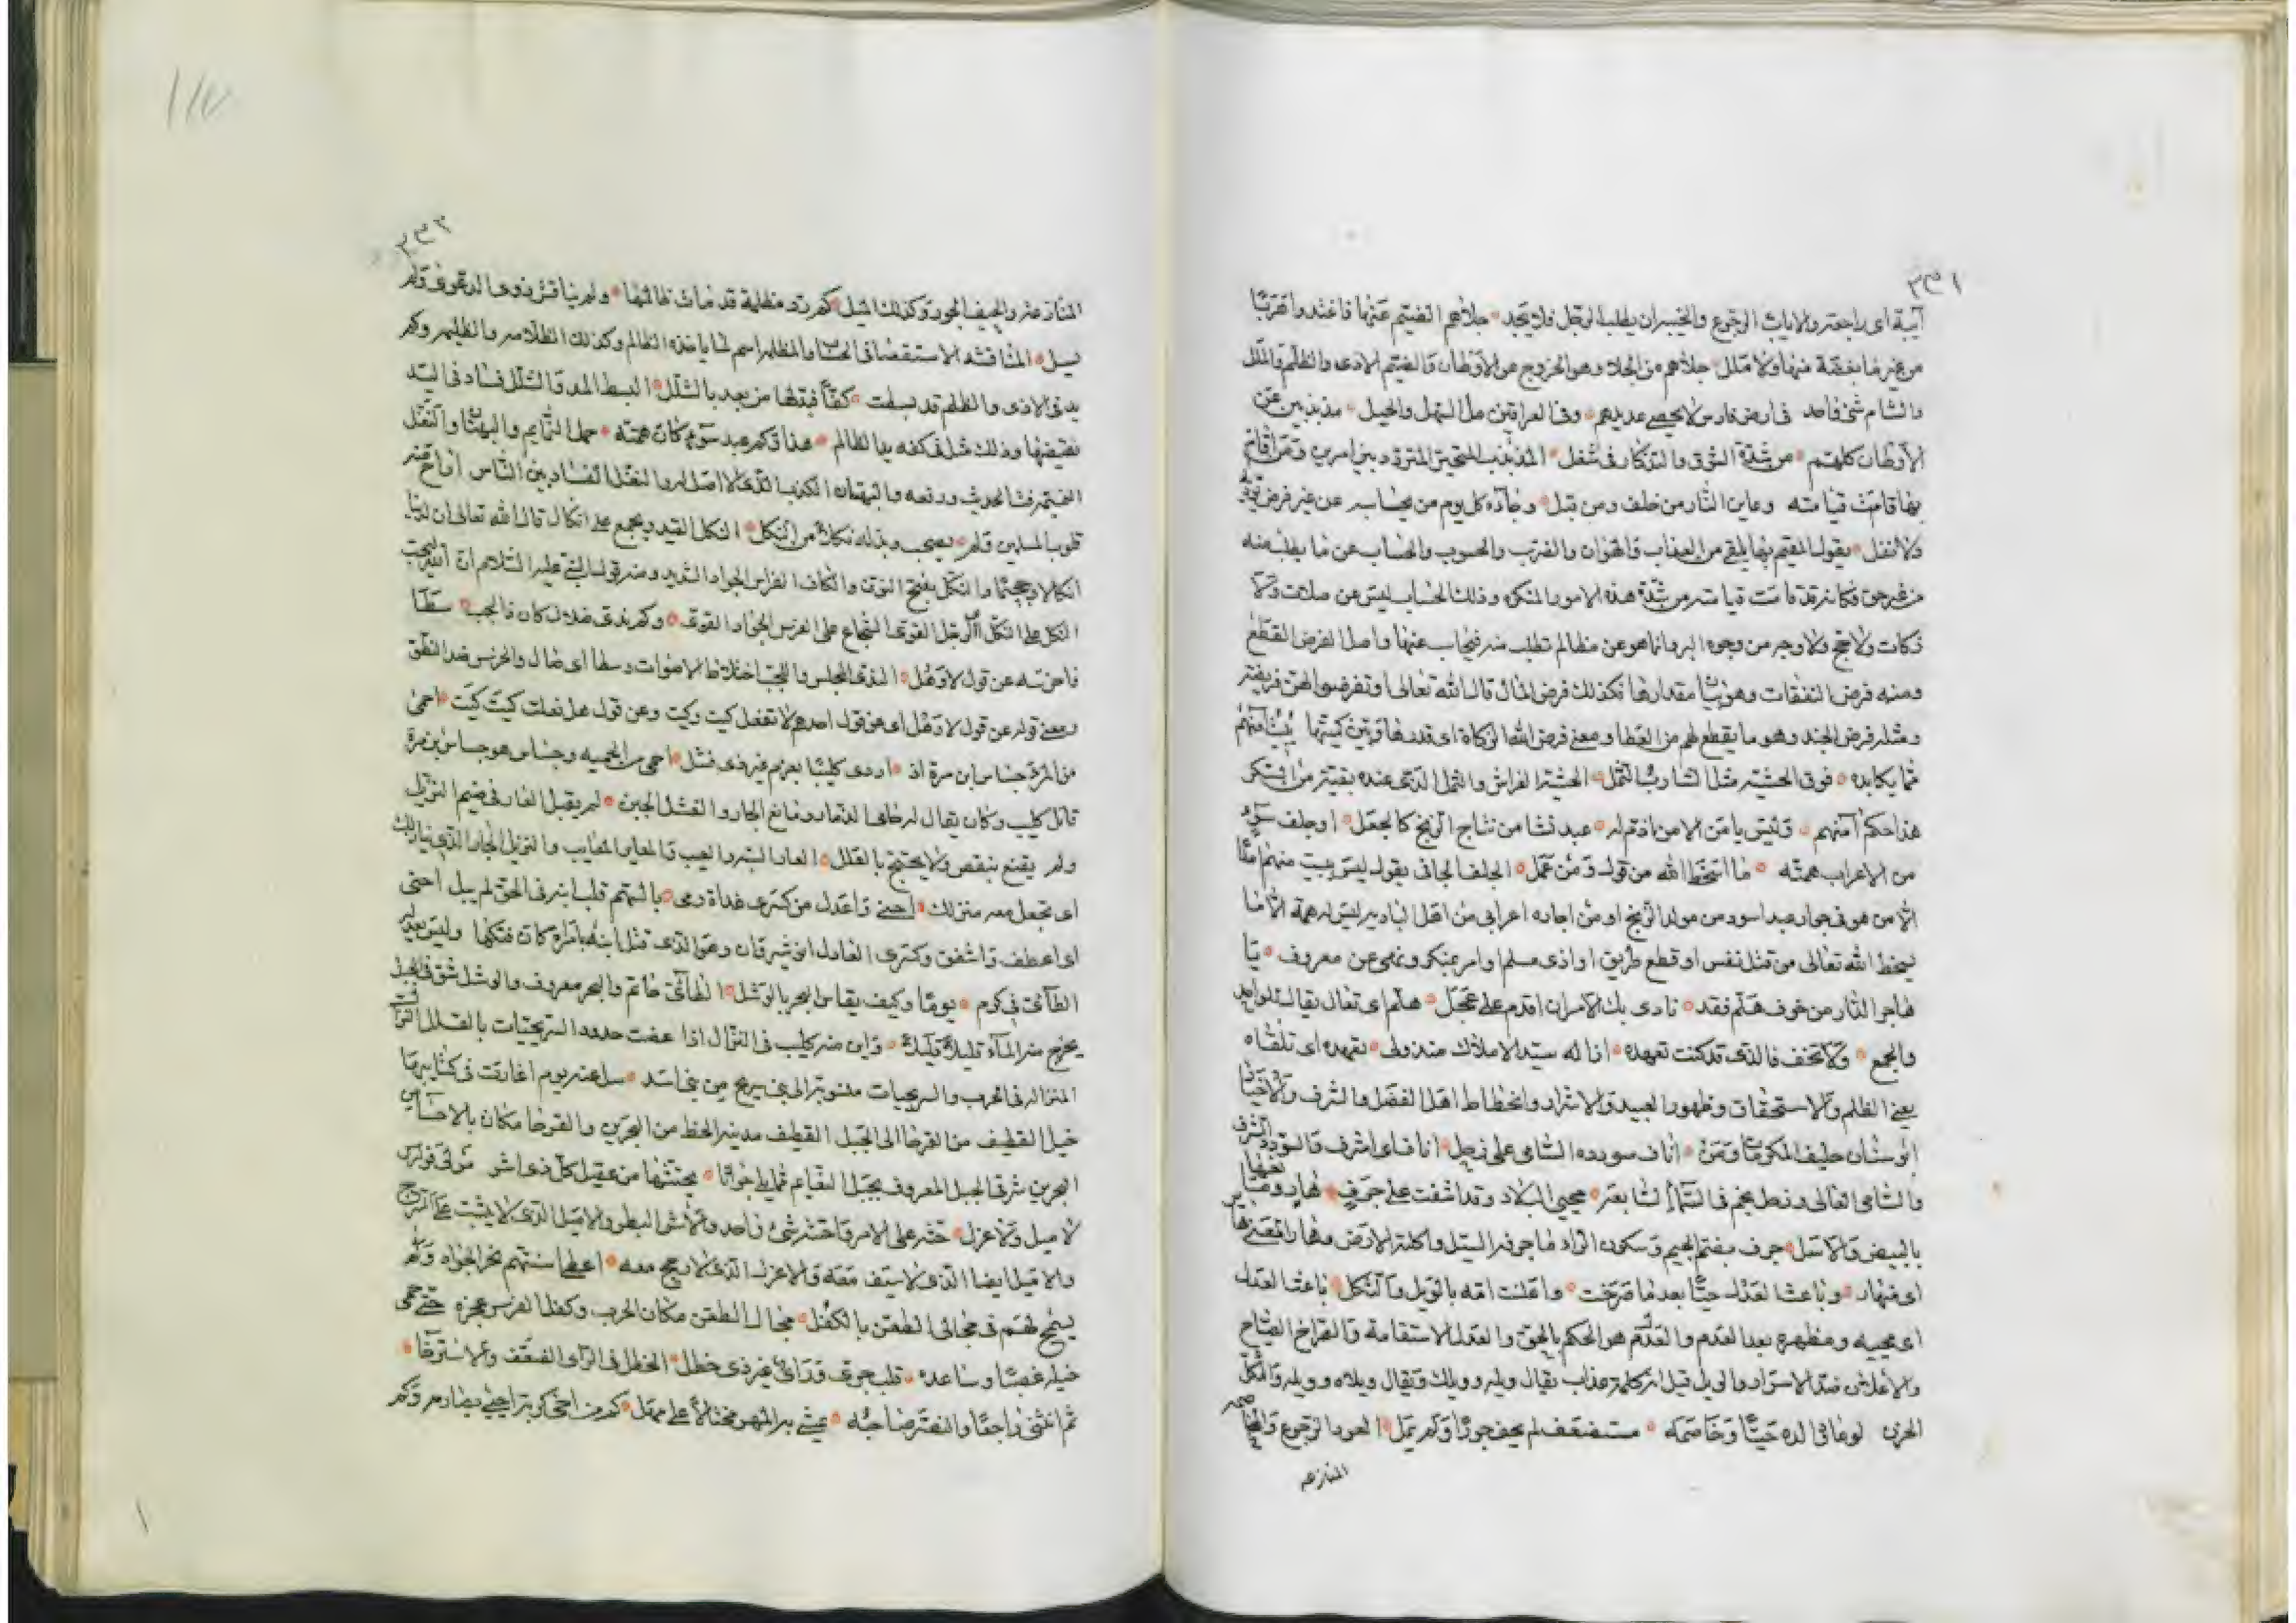 ٣٣١
آيبة اى راجعة والاياب الرجوع والخيبران يطلب الرجل فلا يجد جلاهم الضيم عنها فاغتدوا تقربا
من غير ما بغضة منها ولا ملل جلاهم من الجلا وهو الخروج عن الاوطان والضيم الاذى والظلم والملل
والشام شى واحد فى ارض فارس لا يحصى عديدهم وفى العراقين مل السهل والجبل مذبذبين عن
الاوطان كلهم من شدة الشوق والتذكار فى شغل المذبذب المتحير المتردد بين امرين ومن اقام
بها قامت قيامته وعاين النار من خلف ومن قبل وجاءه كل يوم من يحاسبه عن غير فرض
ولا نفل يقول المقيم بها يلقى من العذاب والهوان والضرب والحسوب والحساب عن ما يطلب منه
من غير حق فكانه قد قامت قيامته من شدة هذه الامور المنكره وذلك الحساب ليس عن صلاة ولا
زكات ولا حج ولا وجه من وجوه البر وانما هو عن مظالم تطلب منه فيحاسب عنها واصل الفرض القطع
ومنه فرض النفقات وهو بيان مقدارها وكذلك فرض المال قال الله تعالى او تفرضوا لهن فريضة
ومثله فرض الجند وهو ما يقطع لهم من العطا ومعنى فرض الله الزكاة اى قدرها وبين كميتها يبيت امنهم
مما يكابده فوق الحشية مثل الشارب الثمل الحشية الفراش والثمل الذى عنده بقية من السكر
هذا حكم آمنهم وليس يامن الا من اذم له عبد نشا من نتاج الزنج كالجعل او جلف سوء
من الاعراب همته ما اسخط الله من قول ومن عمل الجلف الجافى يقول ليس يبيت منهم امنا
الا من هو فى جوار عبد اسود من مولد الزنج او من اجاره اعرابى من اهل البادية ليس له همة الا ما
يسخط الله تعالى من قتل نفس او قطع طريق او اذى مسلم او امر بمنكر ونهى عن معروف يا
هاجر الدار من خوف هلم فقد نادى بك الامران اقدم على عجل هلم اى تعال يقال للواحد
والجمع ولا تخف فالذى قد كنت تعهده اذاله سيد الاملاك منذ ولى تعهده اى تلقاه
يعنى الظلم والاستحقات وظهور العبيد والاشرار وانحطاط اهل الفضل والشرف والاخيار
ابو سنان حليف المكرمات ومن اناف سودده السامى على زحل اناف اى اشرف والسودد الشرف
والسامى العالى وزحل نجم فى السماء السابعة محيى البلاد وقد اشفت على جرف هار
بالبيض والاسل جرف بضم الجيم وسكون الراء ما جرفه السيل واكلته الارض
اى منهار وباعث العدل حيا بعد ما صرخت واعلنت امه بالويل والثكل باعث العدل
اى محييه ومظهره بعد العدم والعدل هو الحكم بالحق والعدل الاستقامة والصراخ الصياح
والاعلان ضد الاسرار والويل قيل انه كلمة عذاب يقال ويله وويلك ويقال ويلاه وويله والثكل
الحزن لو عاد فى الده حيا وخاصمه مستضعف لم يحف جورا ولم يمل العود الرجوع
المنازعه
٣٣٢
المنازعة والحيف الجور وكذلك الميل كم رد مظلمة قد مات ظالمها ولم يناقش ذوى الدعوى ولم
يسل المناقشه الاستقصا فى الحساب والمظلمه اسم لما ياخذه الظالم وكذلك الظلامه والظليمه وكم
يد فى الاذى والظلم قد بسطت كفا قبضها من بعد بالشلل البسط المد والشلل فساد فى اليد
نقيضها وذلك مثل فى كفه يد الظالم هذا وكم عبد سوء كان همته حمل النمايم والبهتان والنقل
النميمة نث الحديث ورفعه والبهتان الكذب الذى لا اصل له والنقل الفساد بين الناس
قلوب المسلمين فلم يصحب وبدله نكالا من النكل النكل القيد ويجمع على انكال قال الله تعالى ان لدينا
انكالا وجحيما والنكل بفتح النون والكاف الفرس الجواد الشديد ومنه قول النبى عليه السلام ان الله يحب
النكل على النكل اى الرجل القوى الشجاع على الفرس الجواد القوى وكم ندى ضلال كان ذا لجب سطا
فاخرسه عن قول لا وهل الندى المجلس واللجب اختلاط الاصوات وسطا اى صال والخرس ضد النطق
ومعنى قوله عن قول لا وهل اى عن قول احدهم لا تفعل كيت وكيت وعن قول هل فعلت كيت كيت احمى
من المرء جساس ابن مرة اذ اردى كليبا بعزم غير ذى فشل احمى من الحميه وجساس هو جساس بن مرة
قاتل كليب وكان يقال له حامى الذمار ومانع الجار والفشل الجبن لم يقبل العار فى ضيم النزيل
ولم يقنع بنقص ولا يحتج بالعلل العار السبه والعيب والمعاير المعايب والنزيل الجار الذى ينازلك
اى تجعل معه منزلك احنى واعدل من كسرى غداة رمى بالسهم قلب ابنه فى الحق لم يبل احنى
اى اعطف واشفق وكسرى العادل انوشيروان وهو الذى قتل ابنه بامراة كان فتكها وليس يعدله
الطائى فى كرم يوما وكيف يقاس البحر بالوشل الطائى حاتم والبحر معروف والوشل شق فى الجبل
يخرج منه الماء قليلا قليلا واين منه كليب فى النزال اذا عضت حدود السريجيات بالقلل
المنزاله فى الحرب والسريجيات منسوبة الى بنى سريج من بنى اسد سل عنه يوم اغارت فى كتايبها
خيل القطيف من القرحا الى الجبل القطيف مدينة الخط من البحرين والقرحا مكان بالاحساء من
البحرين شرقى الجبل المعروف بجبل الشبعان مما يلى جواثا يحثها من عقيل كل ذى اشر
لا ميل ولا عزل حثه على الامر واحتثه شى واحد والاشر البطر والاميل الذى لا يثبت على السرج
والاميل ايضا الذى لا سيف معه والاعزل الذى لا رمح معه اعطى اسنتهم نحر الجواد ولم
يسمح لهم فى مجال الطعن بالكفل مجال الطعن مكان الحرب وكفل الفرس عجزه حتى حمى
خيله غصبا وساعده قلب جرى وراى غير ذى خطل الخطل فى الراى الضعف والاسترخا
ثم انثنى راجعا والنصر صاحبه يمشى به المهر مختالا على مهل كم من اخى كربة احيى بصارمه وكم